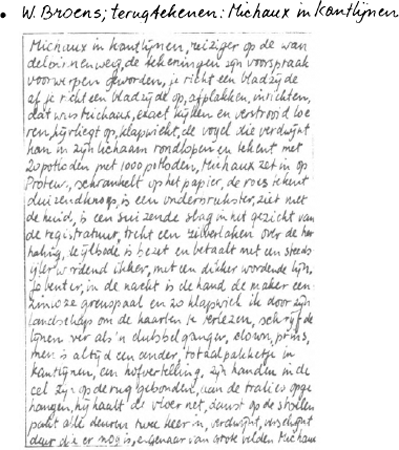 • W. Broens; terugtekenen: Michaux in kantlijnen
Michaux in kantlijnen, reiziger op de wan
de tekeningen zijn voorspraak
voorwerpen geworden, je richt een bladzijde
af je richt een bladzijde op, afplakken, inrichten,
dat was Michaux, exact hijsen en verstrooid
ren, hij vliegt op, klapwiekt, de vogel die verdwijnt
kan in zijn lichaam rondlopen en tekent met
20 potloden met 1000 potloden, Michaux zet in op
Proteur, schrankelt op het papier, de roes tekent
duizendknoop, is een onderdrukster, ziet met
de huid, is een suizende slag in het gezicht van
de registratuur, trekt een zeilverlaken over de her
haling, is bezet en betaalt met een steeds
ijler wordend ikker, met een dikker wordende lijn,
in de nacht is de hand de maker een
grenspaal en zo klapwiek ik door zijn
landschap om de kaarten te verlezen, schrijf de
lijnen ver als 'n dubbelganger, clown, prins,
men is altijd een ander, totaal pakketje in
kantlijnen, een hofvertelling, zijn handen in de
cel zijn op de rug gebonden, aan de tralies opge
hangen, hij haalt de vloer net, danst op de stoelen
pakt alle deuren twee keer in, verdwijnt, verschijnt
deur die er nog is, eigenaar van grote velden Michaux